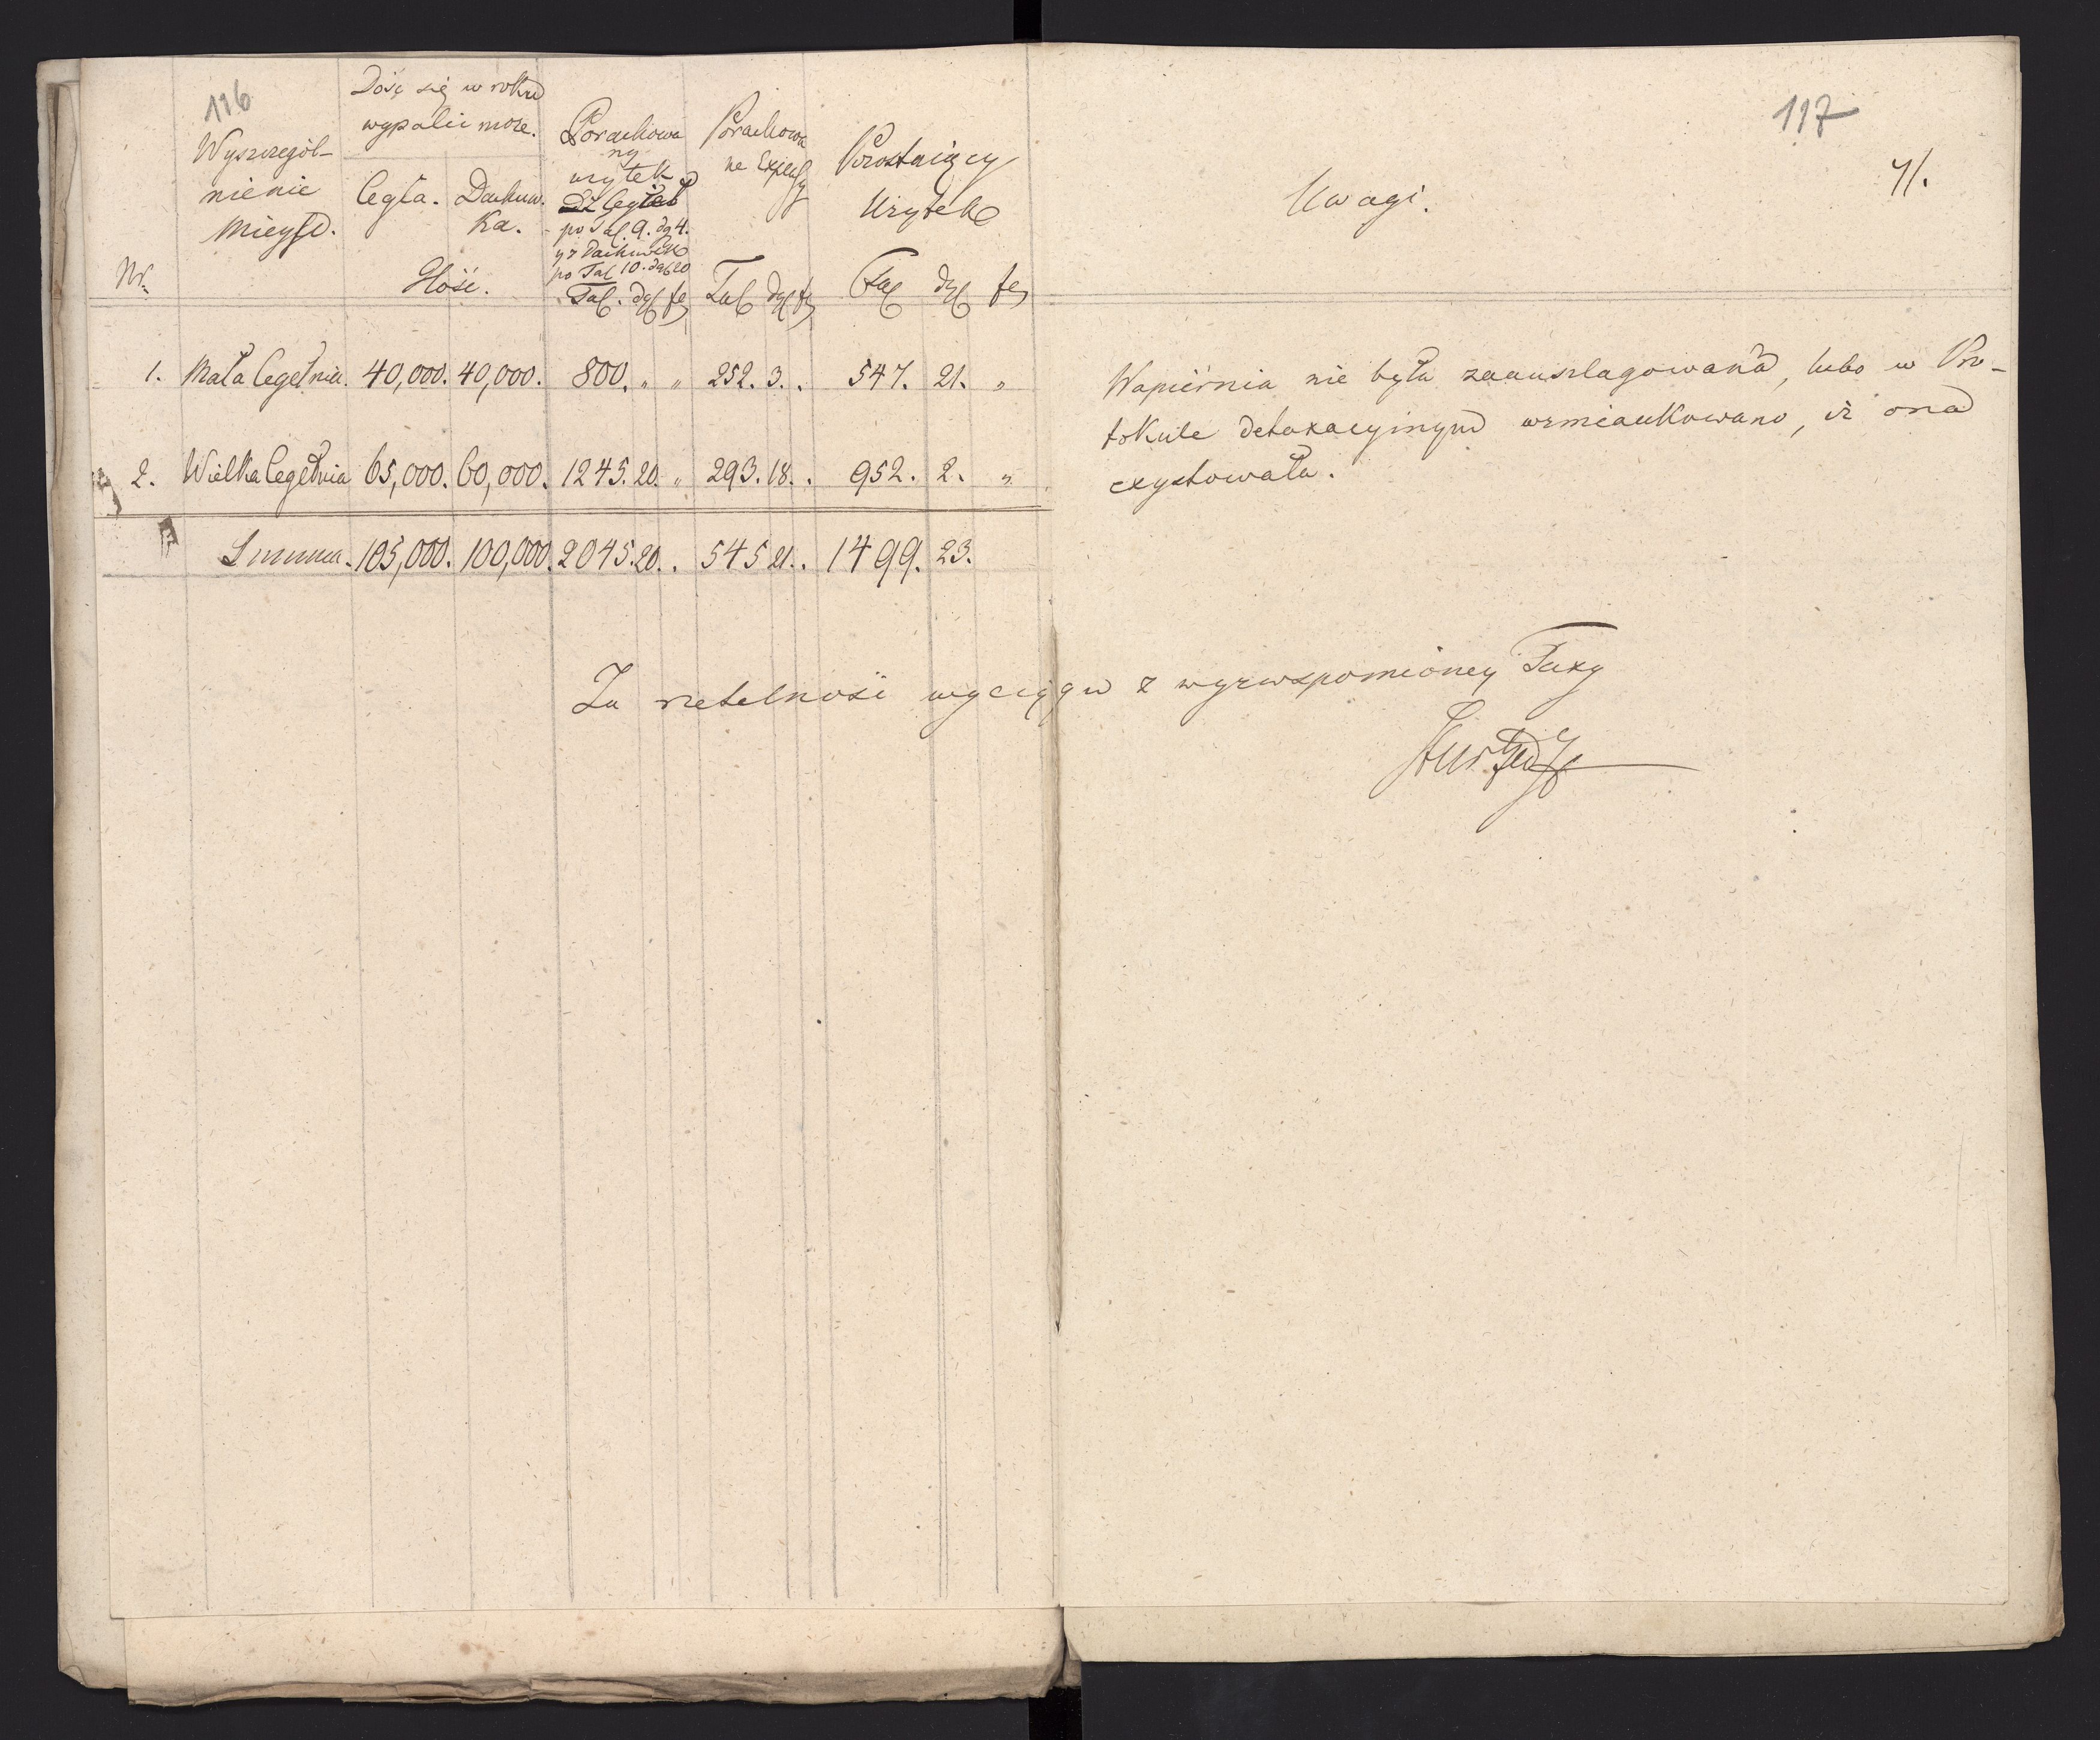 116
Nr.
Wyszczegól-
nienie
Mieysc.
Dość się w roku
wypalić może.
Cegła. Dachuw-
ka.
Ilość.
Porachowa
ny
użytek
Z Cegieł
po Tal. 9. dg 4.
y z Dachuwek
po Tal 10. dg 20
Tal. dgl fe
Porachowa
ne Expensy
Tal dgl fe
Pozostaiący
Użytek
Tal dgl fe
1. Mała Cegelnia. 40,000. 40,000. 800. „ „ 252. 3. . 547. 21. „
2. Wielka Cegelnia 65,000. 60,000. 1245. 20. „ 293. 18. . 952. 2. „
Summa. 105,000. 100,000. 2045. 20. . 545 21. . 1499. 23.
117
71.
Uwagi.
Wapiernia nie była zaauszlagowana, lubo w Pro-
tokule detaxacyinym wzmiankowano, iż ona
exystowała.
Za rzetelność wyciągu z wyżwspomioney Taxy